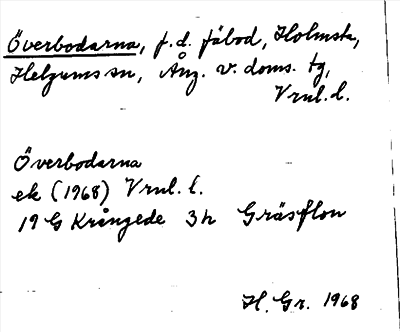 Överbodarna, f.d. fäbod, Holmsta,
Helgums sn, Ång. v. doms. tg,
Vrnl. l.
Överbodarna
ek (1968) Vrnl. l.
19 G Krångede 3h Gräsflon
H. Gr. 1968